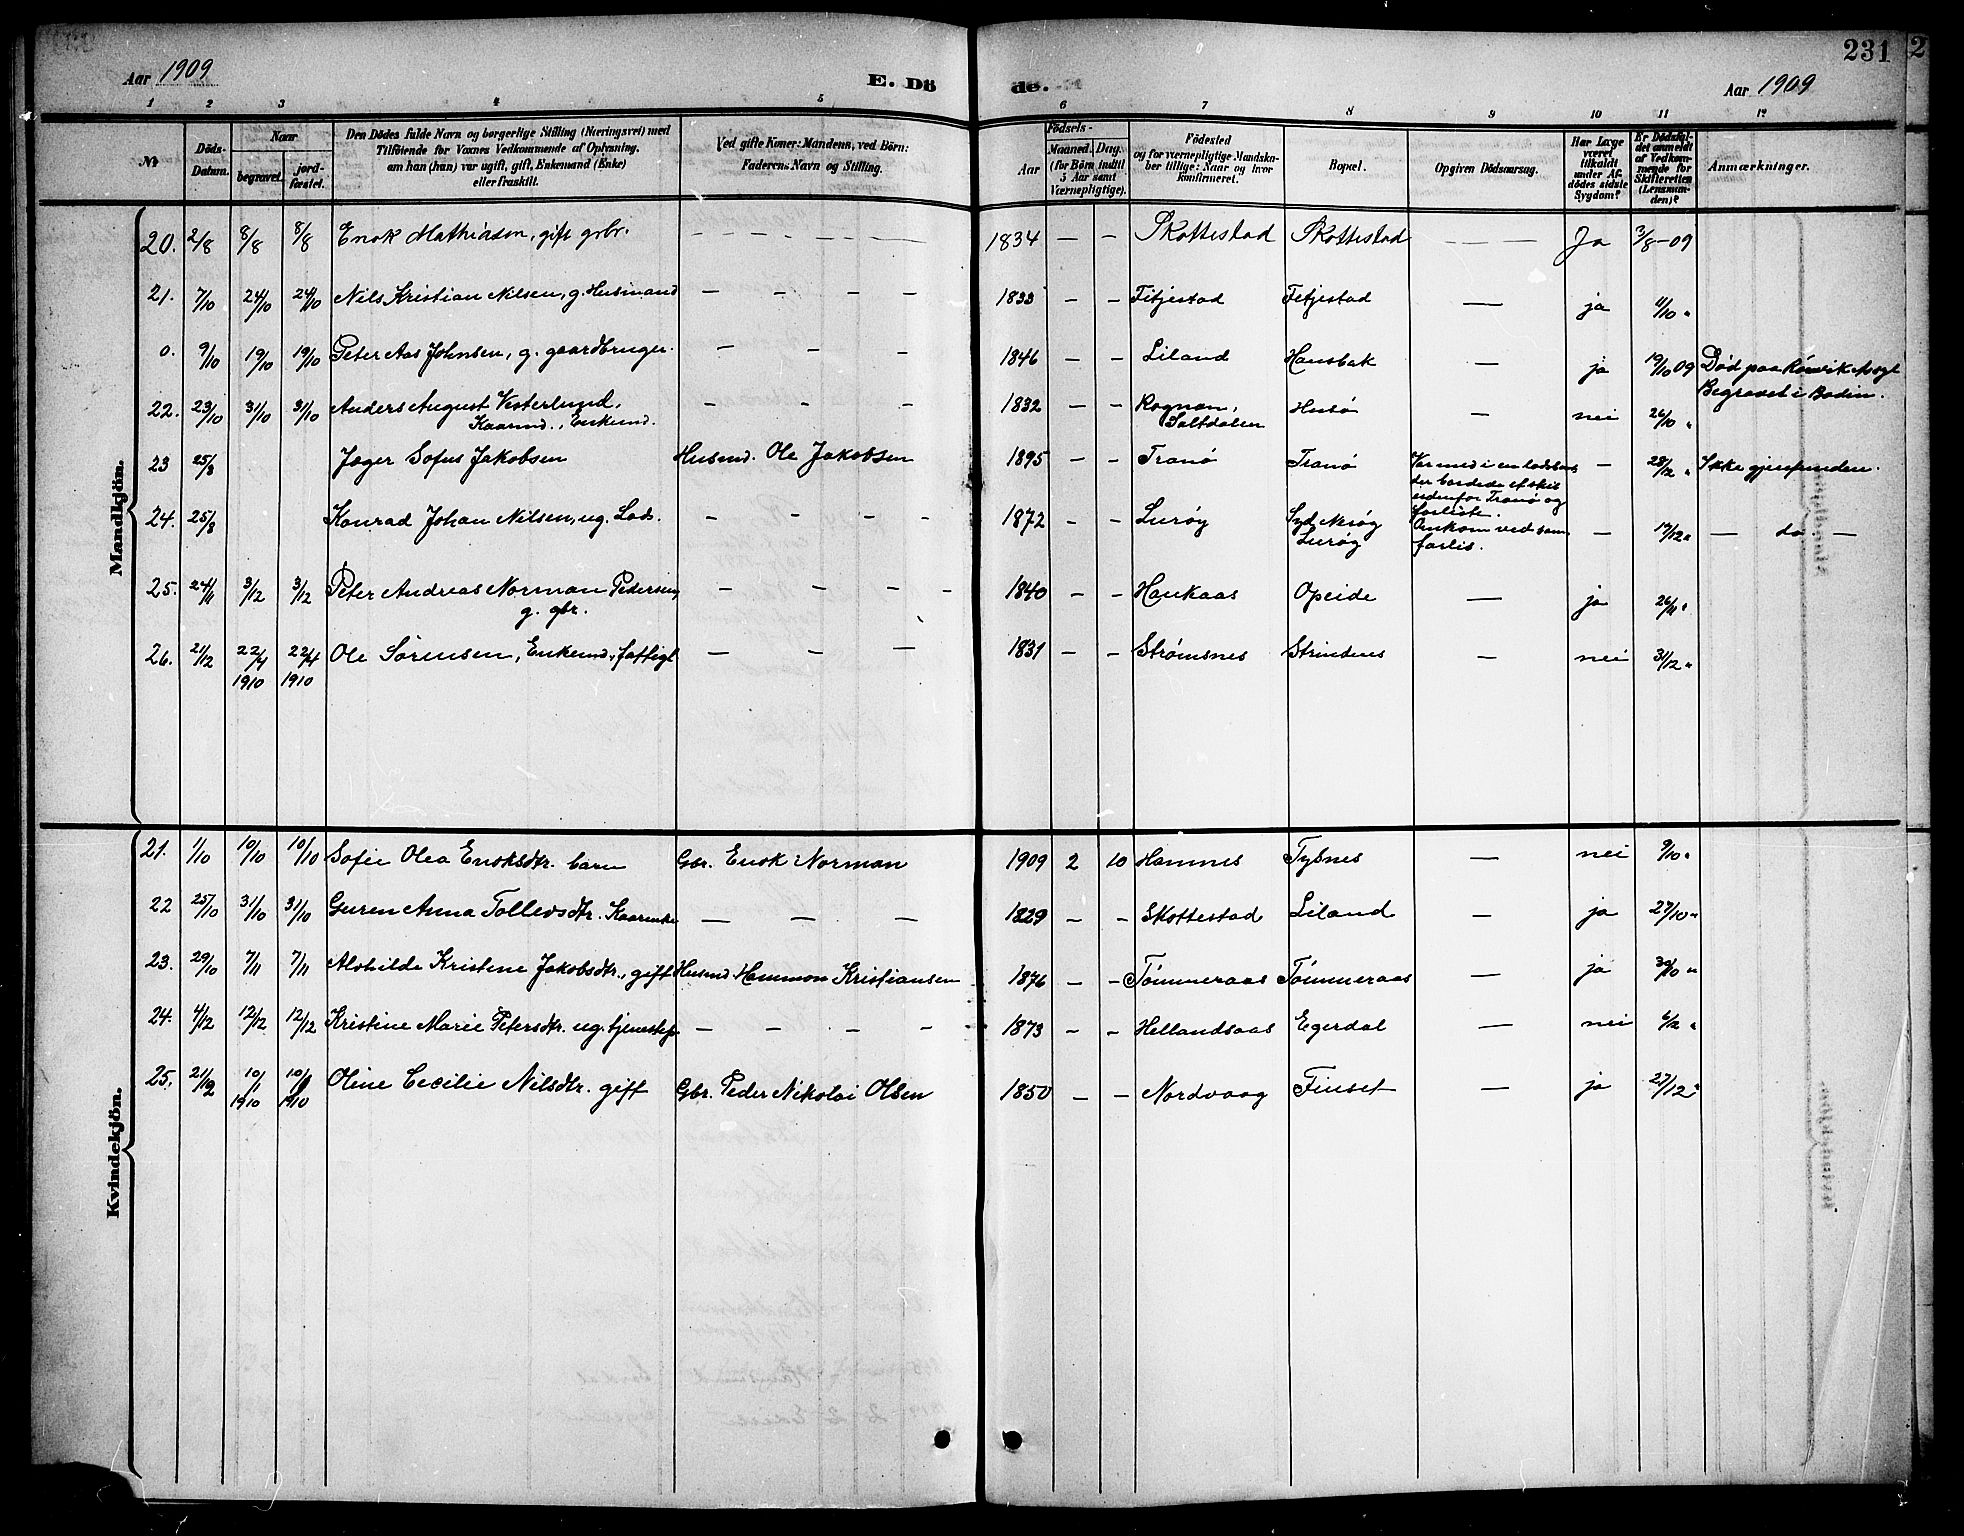 231
Aar 1909 E. Dö de. Aar 1909
1 2 3 4 5 6 7 8 9 10 11 12
№ Döds-Datum. Naar begravet. jord-fæstet. Den Dödes fulde Navn og borgerlige Stilling (Næringsvei) med Tilföiende for Voxnes Vedkommende af Oplysning, om han (hun) var ugift, gift, Enkemand (Enke) eller fraskilt. Ved gifte Koner: Mandens, ved Börn: Faderens Navn og Stilling. Födsels- Aar Maaned. Dag. (for Börn indtil 5 Aar samt Værnepligtige). Födested og for værnepligtige Mandska-ber tillige: Naar og hvor konfirmeret. Bopæl. Opgiven Dödsaarsag. Har Læge været tilkaldt under Af-dödes sidste Sygdom? Er Dödsfal-det anmeldt af Vedkom-mende for Skifteretten (Lensman-den)? Anmærkninger.
Mandkjön.
20. 2/8 8/8 8/8 Enok Mathiasen, gift grbr. — 1834 — — Skottestad Skottestad — Ja 3/8-09
21. 7/10 24/10 24/10 Nils Kristian Nilsen, g. Husmand — 1833 — — Fitjestad Fetjestad — ja 11/10 "
0. 9/10 19/10 19/10 Peter Aas Johnsen, g. gaardbruger. — 1846 — — Liland Hansbak — ja 19/10 09 Død paa Rønvik Asyl
Begravet i Bodin.
22. 23/10 31/10 31/10 Anders August Vesterlund, — 1832 — — Rognan, Husø — nei 26/10 "
Kaarmd., Enkemd. Saltdalen
23 25/8 Jæger Sofus Jakobsen Husmd. Ole Jakobsen 1895 — — Tranø Tranø Var med i en lodsbaad — 28/12 " Ikke gjenfunden.
der bordede et skib
udenfor Tranø og
forliste.
24. 25/8 Konrad Johan Nilsen, ug. Lods. — 1872 — — Lurøy Syd Nesøy Omkom ved sam — 17/12 " — do —
Lurøy forlis.
25. 24/11 3/12 3/12 Peter Andreas Norman Pedersen, — 1840 — — Haukaas Opeide — ja 26/11 "
g. gbr.
26. 21/12 22/4 22/4 Ole Sørensen, Enkemd., fattigl — 1831 — — Strømsnes Strindnes — nei 31/12 "
1910 1910
Kvindekjön.
21. 1/10 10/10 10/10 Sofie Olea Enoksdtr. barn Gbr. Enok Norman 1909 2 10 Hamnes Tysnes — nei 9/10 "
22 25/10 31/10 31/10 Guren Anna Tollevsdtr. Kaarenke — 1829 — — Skottestad Liland — ja 27/10 "
23. 29/10 7/11 7/11 Alvhilde Kristene Jakobsdtr., gift Husmd. Hammon Kristiansen 1876 — — Tømmeraas Tømmeraas — ja 30/10 "
24. 4/12 12/12 12/12 Kristine Marie Petersdtr. ug. tjenestep — 1873 — — Hellandsaas Egerdal — nei 6/12 "
25. 21/12 10/1 10/1 Oline Cecilie Nilsdtr. gift Gbr. Peder Nikolai Olsen 1850 — — Nordvaag Finset — ja 27/12 "
1910 1910